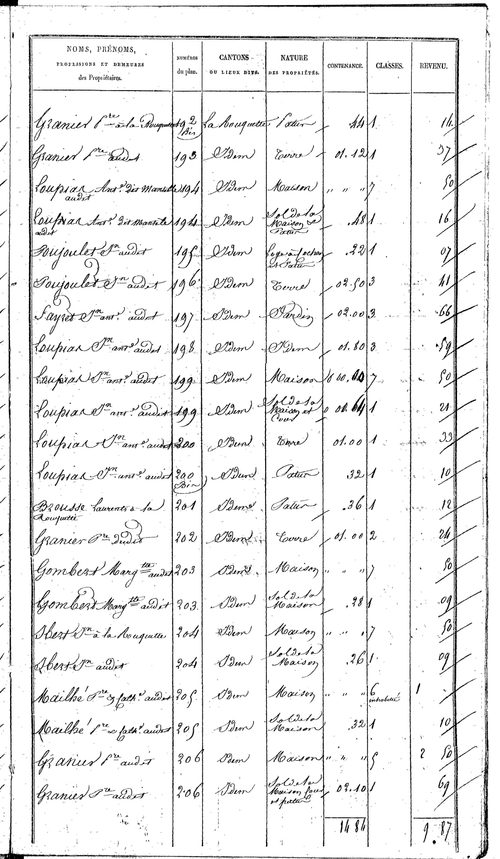 NOMS, PRÉNOMS, PROFESSIONS ET DEMEURES des Propriétaires. NUMÉROS du plan. CANTONS OU LIEUX DITS. NATURE DES PROPRIÉTÉS. CONTENANCE. CLASSES. REVENU.
Granier Pre à la Rouquette 192 Bis La Rouquette Patur 44 1 14
Granier Pre audit 193 Idem Terre 01.12 1 37
Loupias Ant. dit Mansille audit 194 Idem Maison " " " 7 50
Loupias Ant. dit Mansille audit 194 Idem Sol de la Maison et Patur .48 1 16
Poujoulet Jn audit 195 Idem et Patur .22 1 07
Poujoulet Jn audit 196 Idem Terre 02.50 3 41
Fayret Jn ant. audit 197 Idem Jardin 02.00 3 66
Loupias Jn ant. audit 198 Idem Idem 01.80 3 59
Loupias Jn ant. audit 199 Idem Maison 7 50
Loupias Jn ant. audit 199 Idem Sol de la Maison et Cour 64 1 21
Loupias Jn ant. audit 200 Idem Terre 01.00 1 33
Loupias Jn ant. audit 200 Bis Idem Patur 32 1 10
Brousse Laurent à la Rouquette 201 Idem Patur .36 1 12
Granier Pre dudit 202 Idem Terre 01.00 2 24
Gombert Marg.tte audit 203 Idem Maison " " " 7 50
Gombert Marg.tte audit 203 Idem Sol de la Maison .28 1 09
Ibert Jn à la Rouquette 204 Idem Maison " " " 7 50
Ibert Jn audit 204 Idem Sol de la Maison .26 1 09
Mailhé Pre et Cath. audit 205 Idem Maison " " " 6 1 .
Mailhé Pre et Cath. audit 205 Idem Sol de la Maison .32 1 10
Granier Pre audit 206 Idem Maison " " " 5 2 50
Granier Pre audit 206 Idem Sol de la Maison four et patur 02.10 1 69
14 84 9.87